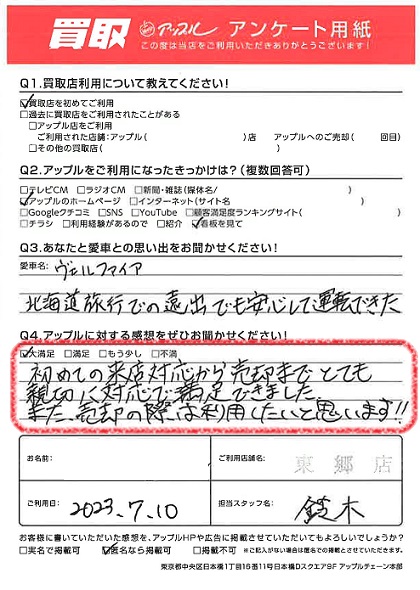 買取 アップル アンケート用紙
この度は当店をご利用いただきありがとうございます!
Q1.買取店利用について教えてください!
☑買取店を初めてご利用
□過去に買取店をご利用されたことがある
□アップル店をご利用
ご利用された店舗:アップル( )店 アップルへのご売却( 回目)
□その他の買取店( )
Q2.アップルをご利用になったきっかけは?(複数回答可)
□テレビCM □ラジオCM □新聞・雑誌(媒体名/ )
☑アップルのホームページ □インターネット(サイト名 )
□Googleクチコミ □SNS □YouTube □顧客満足度ランキングサイト( )
□チラシ □利用経験があるので □紹介 ☑看板を見て
Q3.あなたと愛車との思い出をお聞かせください!
愛車名: ヴェルファイア
北海道旅行での遠出でも安心して運転できた
Q4.アップルに対する感想をぜひお聞かせください!
☑大満足 □満足 □もう少し □不満
初めての来店対応から売却までとても
親切に対応で満足できました。
また、売却の際は利用したいと思います!!
お名前: ご利用店舗名: 東郷店
ご利用日: 2023.7.10 担当スタッフ名: 鈴木
お客様に書いていただいた感想を、アップルHPや広告に掲載させていただいてもよろしいでしょうか?
□実名で掲載可 ☑匿名なら掲載可 □掲載不可 ※ご記入がない場合は匿名での掲載とさせていただきます。
東京都中央区日本橋1丁目16番11号日本橋Dスクエア9F アップルチェーン本部